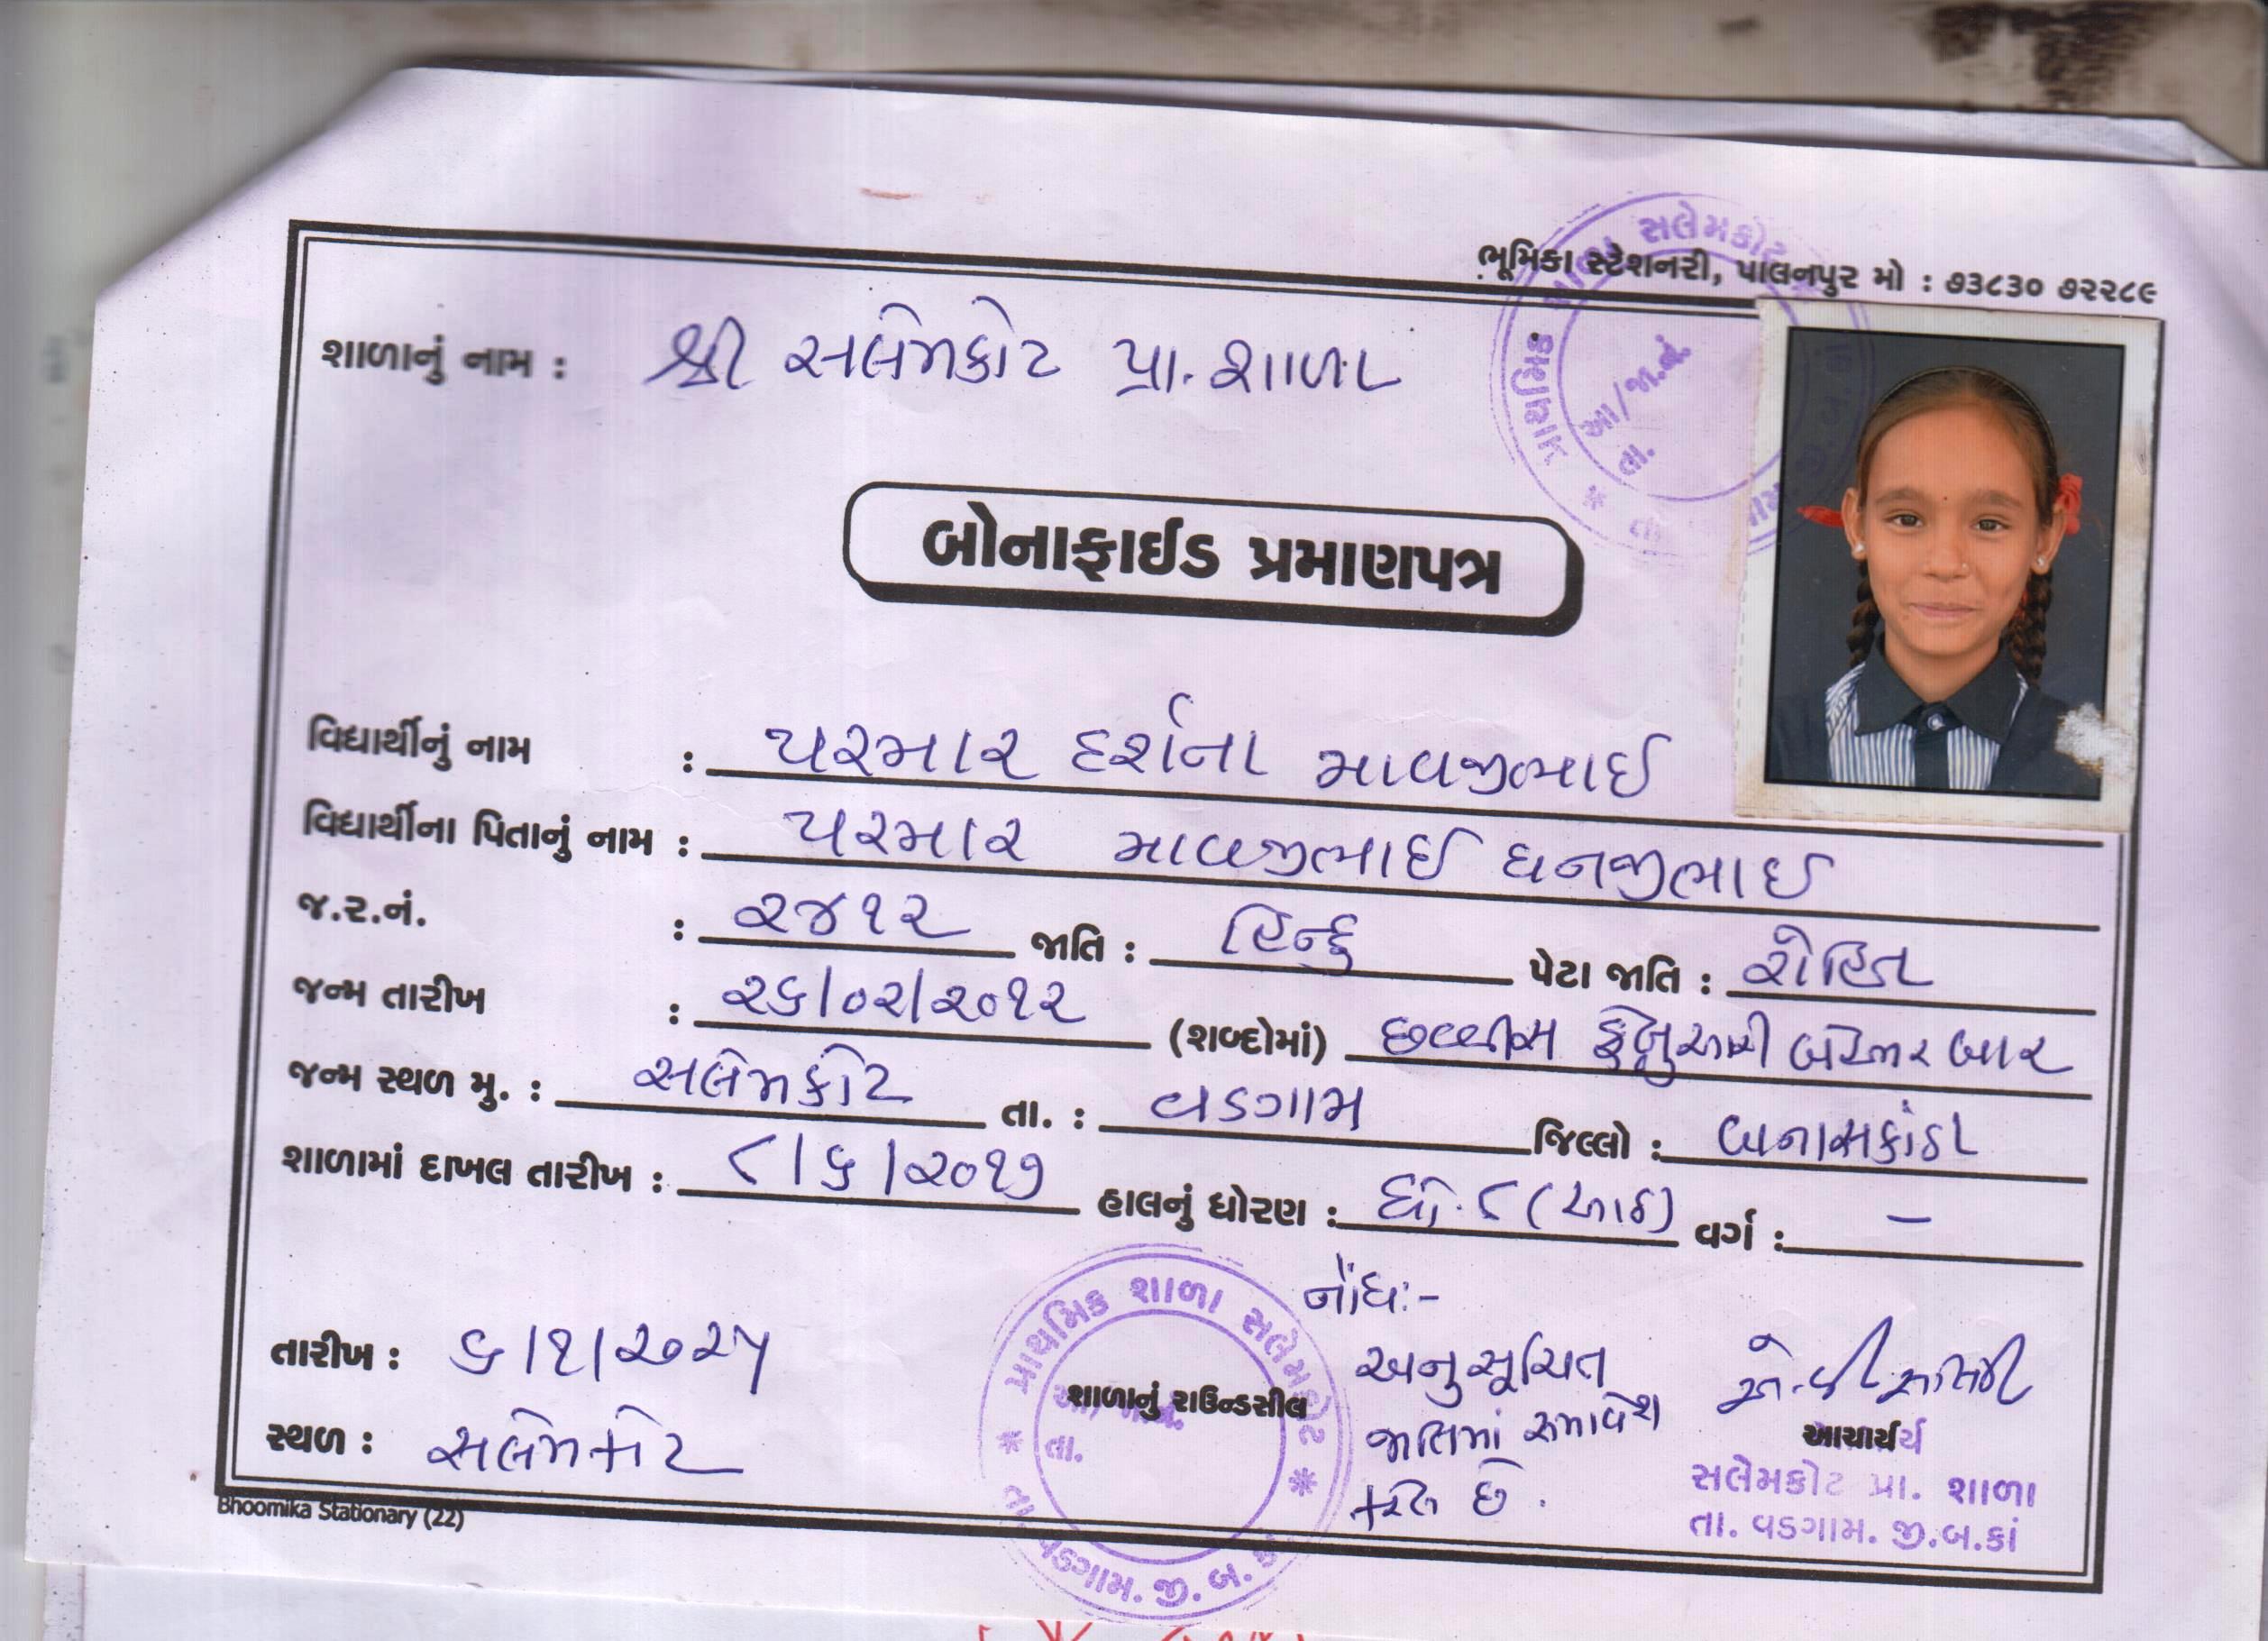 ભૂમિકા સ્ટેશનરી, પાલનપુર મો : ૭૩૮૩૦ ૭૨૨૮૯
શાળાનું નામ : શ્રી સલેમકોટ પ્રા. શાળા
પ્રાથમિક શાળા સલેમકોટ
આ/જા.નં
તા.
બોનાફાઈડ પ્રમાણપત્ર
વિદ્યાર્થીનું નામ : પરમાર દર્શના માવજીભાઈ
વિદ્યાર્થીના પિતાનું નામ : પરમાર માવજીભાઈ ધનજીભાઈ
જ.ર.નં. : ૨૪૧૨ જાતિ : હિન્દુ પેટા જાતિ : રોહિત
જન્મ તારીખ : ૨૬/૦૨/૨૦૧૨ (શબ્દોમાં) છવ્વીસ ફેબ્રુઆરી બેહજાર બાર
જન્મ સ્થળ મુ. : સલેમકોટ તા. : વડગામ જિલ્લો : બનાસકાંઠા
શાળામાં દાખલ તારીખ : ૮/૬/૨૦૧૭ હાલનું ધોરણ : ધો. ૮ (આઠ) વર્ગ : –
નોંધ:-
અનુસૂચિત
જાતિમાં સમાવેશ
થયેલ છે.
તારીખ : ૬/૧/૨૦૨૫
સ્થળ : સલેમકોટ
શાળાનું રાઉન્ડસીલ
પ્રાથમિક શાળા સલેમકોટ
તા.
તા. વડગામ. જી. બ. કાં
આચાર્ય
સલેમકોટ પ્રા. શાળા
તા. વડગામ. જી.બ.કાં
Bhoomika Stationary (22)